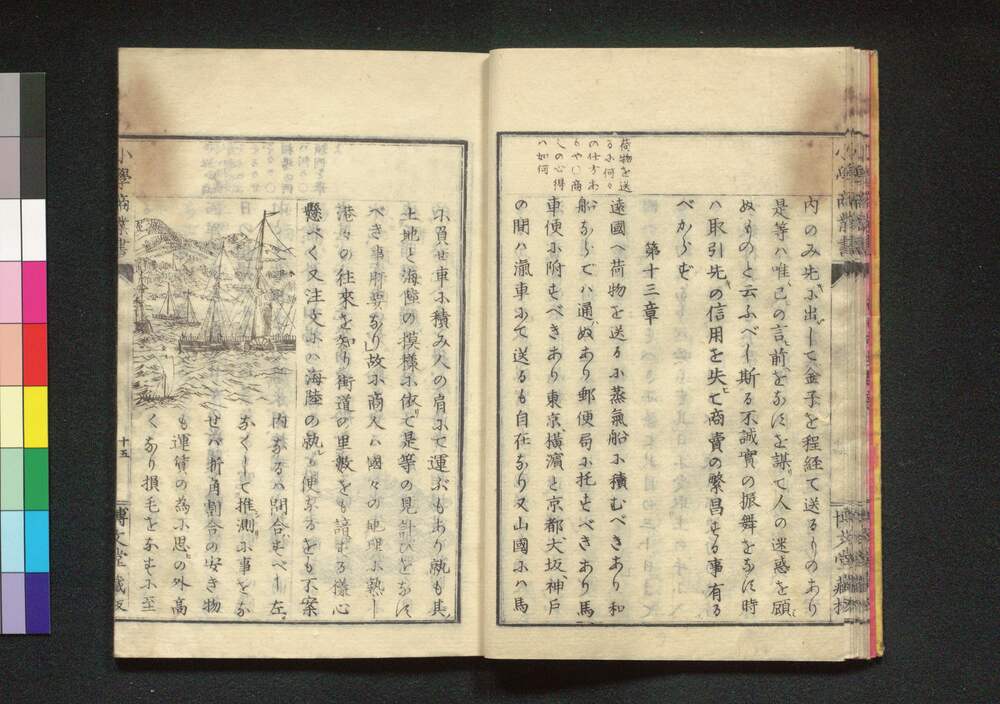 内のみ先に出して金子を程経て送るものあり
是等ハ唯己の言前をなさんと謀て人の迷惑を顧
ぬものと云ふべし斯る不誠實の振舞をなす時
ハ取引先の信用を失て商賣の繁昌する事有る
べからず
第十三章
荷物を送
るに何々
の仕方あ
りや〇商
人の心得
ハ如何
遠國へ荷物を送るに蒸氣船に積むべきあり和
船ならでハ通ぬあり郵便局に托すべきあり馬
車便に附すべきあり東京横濱と京都大坂神戸
の間ハ滊車にて送るも自在なり又山國にハ馬
に負せ車に積み人の肩にて運ぶもあり孰も其
土地と海陸の摸様に依て是等の見計ひをなす
べき事肝要なり故に商人ハ國々の地理に熟し
港々の往來を知り街道の里數をも諳ずる樣心
懸べく又注文にハ海陸の孰も便なるをも不案
内なるハ問合すべし左
なくして推測に事をな
せバ折角割合の安き物
も運賃の為に思の外高
くなり損毛をなすに至
小學商業書
十五
博文堂藏版